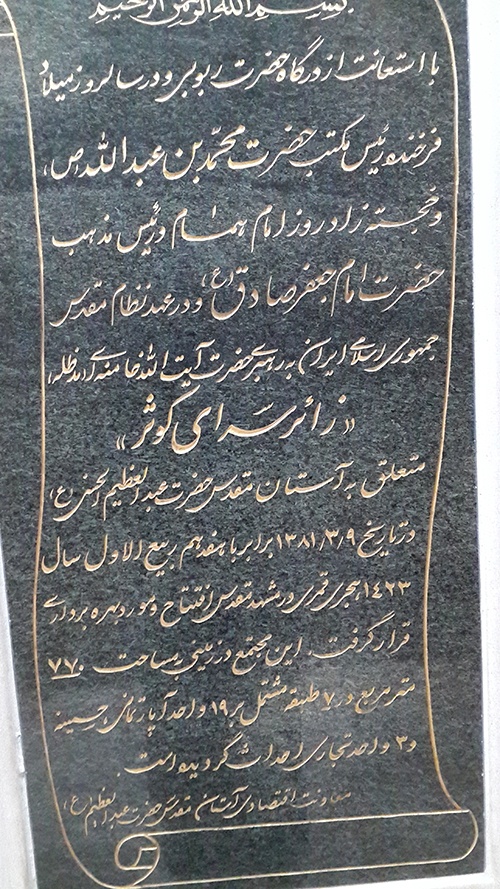 بسم الله الرحمن الرحیم
با استعانت از درگاه حضرت ربوبی و در سالروز میلاد
فرخنده رئیس مکتب حضرت محمّد بن عبدالله (ص)
و خجسته زادروز امام همام و رئیس مذهب
حضرت امام جعفر صادق (ع) و در عهد نظام مقدس
جمهوری اسلامی ایران به رهبری حضرت آیت الله خامنه ای (مدظله)
«زائرسرای کوثر»
متعلق به آستان مقدس حضرت عبدالعظیم الحسنی (ع)
در تاریخ ۱۳۸۱/۳/۹ برابر با هفدهم ربیع الاول سال
۱۴۲۳ هجری قمری در مشهد مقدس افتتاح و مورد بهره برداری
قرار گرفت. این مجتمع در زمینی به مساحت ۷۷۰
متر مربع در ۷ طبقه مشتمل بر ۱۹ واحد آپارتمانی، حسینیه
و ۳ واحد تجاری احداث گردیده است.
معاونت اقتصادی آستان مقدس حضرت عبدالعظیم (ع)